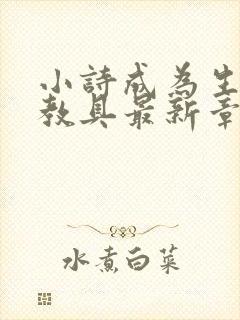 小詩成為生
教具最新章
水煮白菜